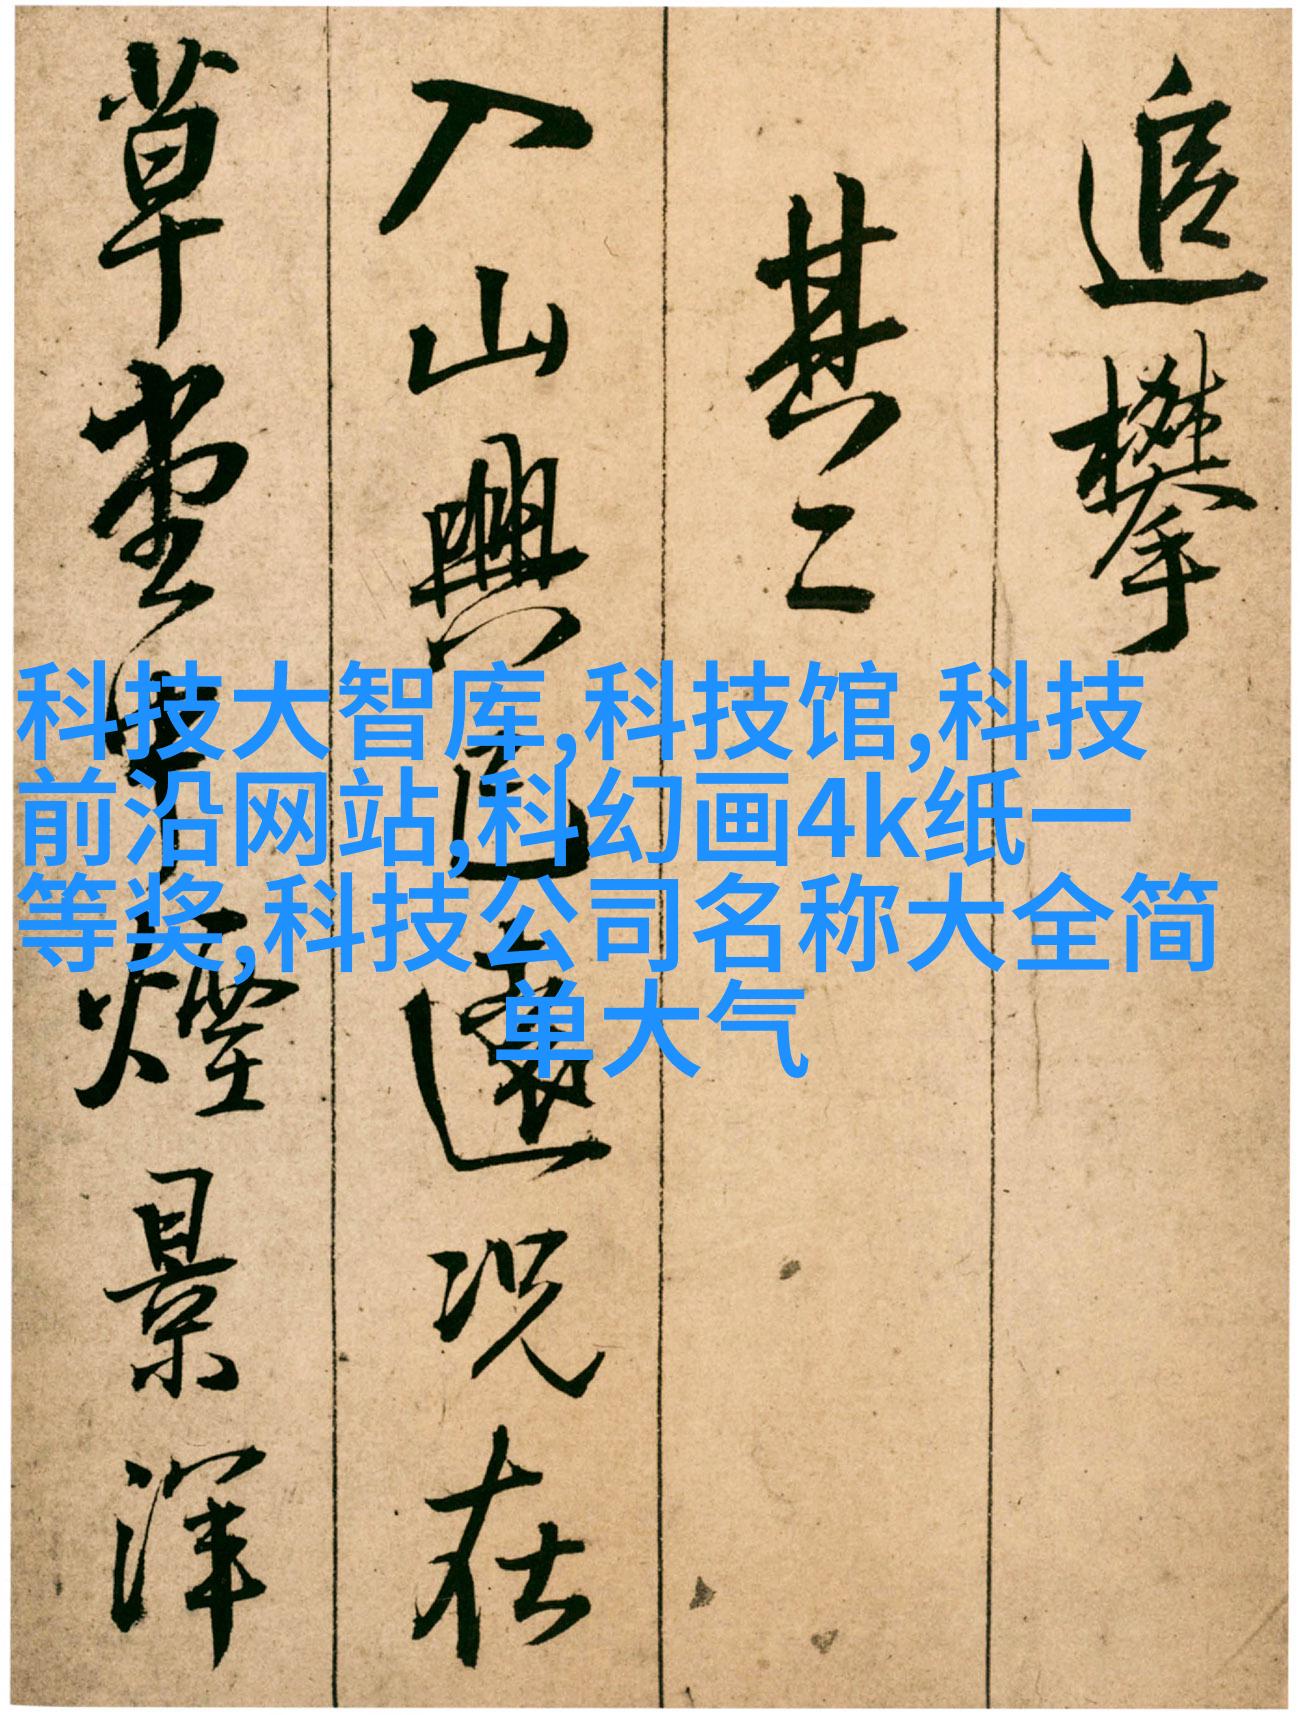 追攀
其二
入山興已遠况在
草堂煙景渾
科技大智库,科技馆,科技
前沿网站,科幻画4k纸一
等奖,科技公司名称大全简
单大气